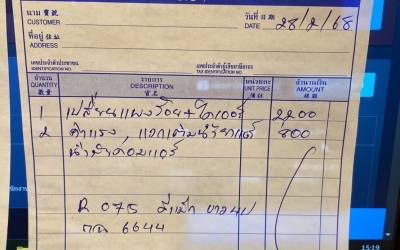 นาม 寶號
CUSTOMER
วันที่ 日期
DATE 28/2/68
ที่อยู่ 住址
ADDRESS
เลขประจำตัวประชาชน
IDENTIFICATION NO.
เลขประจำตัวผู้เสียภาษีอากร
TAX IDENTIFICATION NO.
จำนวน รายการ หน่วยละ จำนวนเงิน
QUANTITY DESCRIPTION UNIT PRICE AMOUNT
數量 貨名
1 เปลี่ยนแผงร้อน+ไดเออร์ 2200
2 ค่าแรง, แวคเติมน้ำยาแอร์ 800
น้ำมันคอมแอร์
R 075
6644
15:19